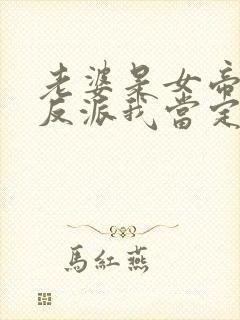 老婆是女帝
反派我當定
馬紅燕